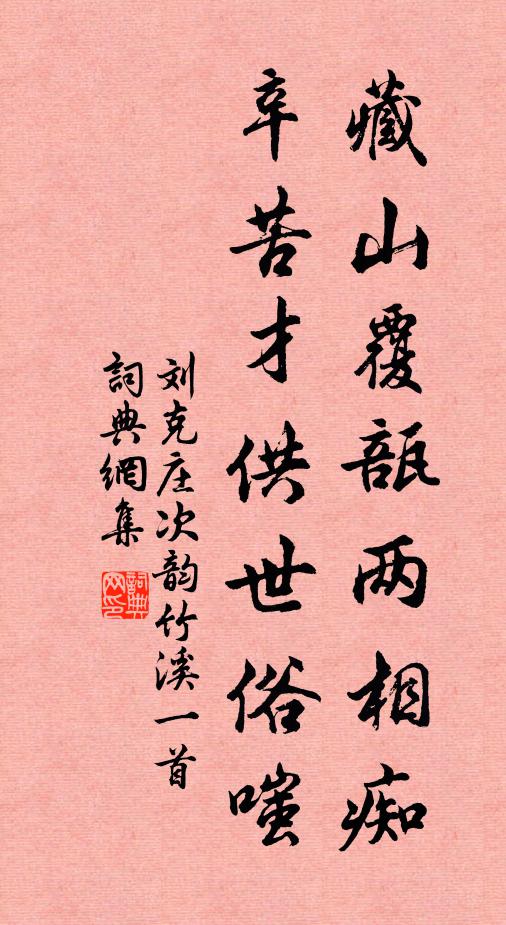 藏山覆瓿两相痴
辛苦才供世俗嗤
刘克庄次韵竹溪一首
詞典網集
詞典
网印